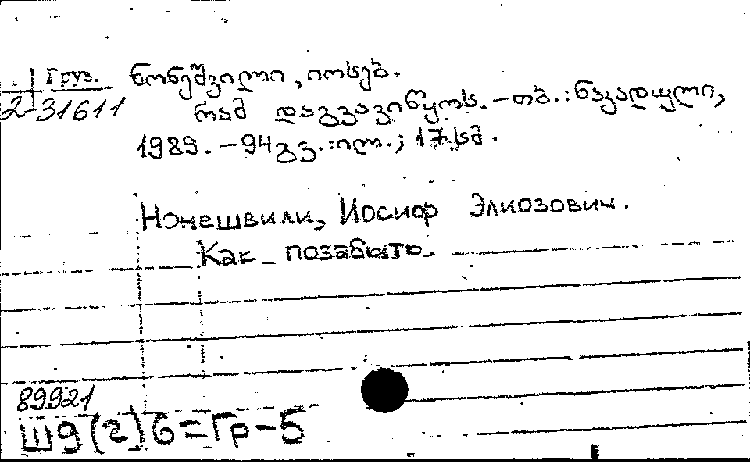 Груз.
2-31611
ნონეშვილი, იოსებ.
რამ დაგვავიწყოს. – თბ. : ნაკადული,
1989. – 94 გვ. : ილ. ; 17 სმ.
Нонешвили, Иосиф Элиозович.
Как позабыть.
89921
Ш9(2)6=Гр-5